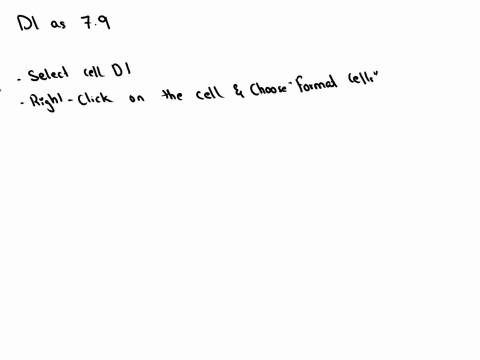 D1 as 7.9
- Select cell D1
- Right-Click on the cell & Choose "Format Cells"